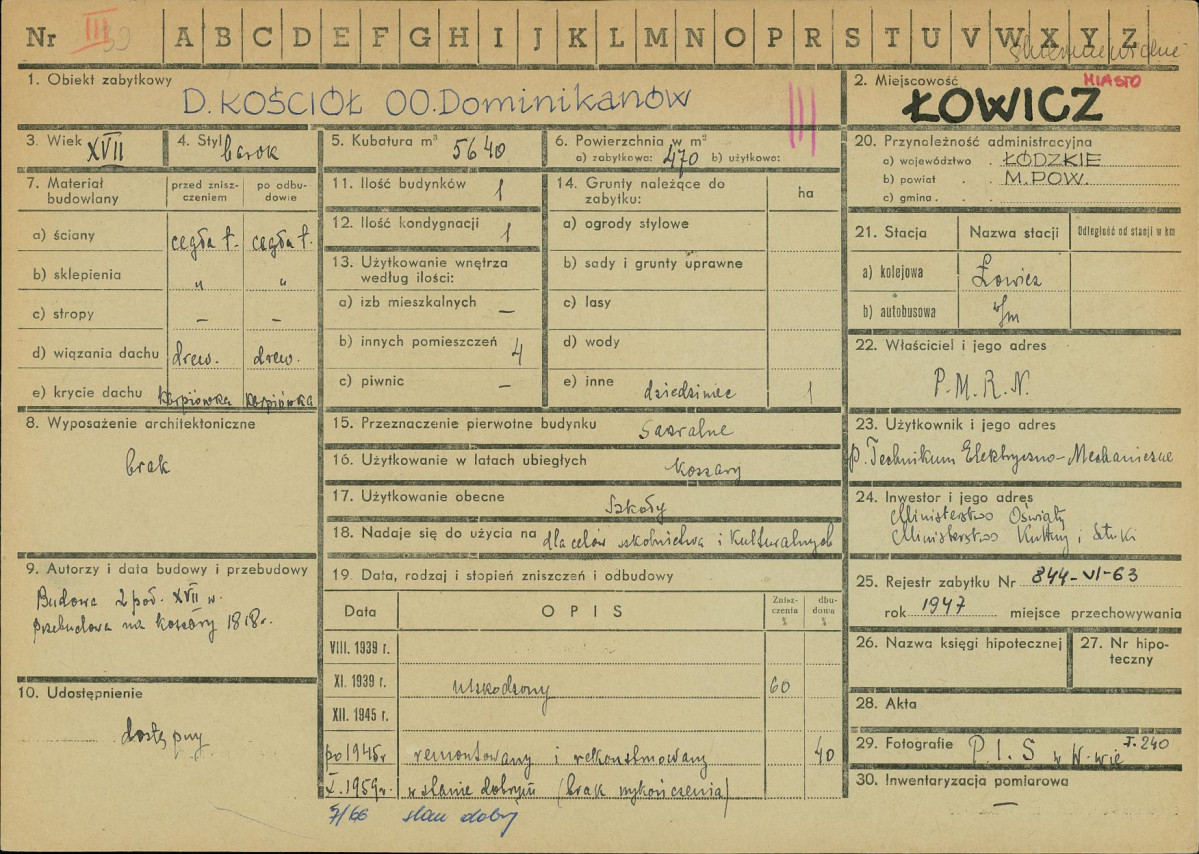 Nr III 39 A B C D E F G H I J K L M N O P R S T U V W X Y Z
1. Obiekt zabytkowy
D. KOŚCIÓŁ OO. Dominikanów
III
2. Miejscowość MIASTO
ŁOWICZ
3. Wiek XVII
4. Styl barok
5. Kubatura m³ 5640
6. Powierzchnia w m²
a) zabytkowa: 470 b) użytkowa:
7. Materiał budowlany
przed zniszczeniem
po odbudowie
a) ściany cegła p. cegła p.
b) sklepienia " "
c) stropy – –
d) wiązania dachu drew. drew.
e) krycie dachu karpiówka karpiówka
8. Wyposażenie architektoniczne
brak
9. Autorzy i data budowy i przebudowy
Budowa 2 poł. XVII w.
przebudowa na koszary 1818 r.
10. Udostępnienie
dostępny
11. Ilość budynków 1
12. Ilość kondygnacji 1
13. Użytkowanie wnętrza
według ilości:
a) izb mieszkalnych –
b) innych pomieszczeń 4
c) piwnic –
14. Grunty należące do
zabytku:
ha
a) ogrody stylowe
b) sady i grunty uprawne
c) lasy
d) wody
e) inne dziedziniec 1
15. Przeznaczenie pierwotne budynku Sakralne
16. Użytkowanie w latach ubiegłych Koszary
17. Użytkowanie obecne Szkoły
18. Nadaje się do użycia na dla celów szkolnictwa i kulturalnych
19. Data, rodzaj i stopień zniszczeń i odbudowy
Data OPIS Zniszczenia % dbudowa %
VIII. 1939 r.
XI. 1939 r. uszkodzony 60
XII. 1945 r.
po 1945 r remontowany i rekonstruowany 40
X. 1959 r. w stanie dobrym (brak wykończenia)
7/66 stan dobry
20. Przynależność administracyjna
a) województwo . ŁÓDZKIE
b) powiat . . M. POW.
c) gmina . .
21. Stacja Nazwa stacji Odległość od stacji w km
a) kolejowa Łowicz
b) autobusowa w/m
22. Właściciel i jego adres
P. M. R. N.
23. Użytkownik i jego adres
P. Technikum Elektryczno-Mechaniczne
24. Inwestor i jego adres
Ministerstwo Oświaty
Ministerstwo Kultury i Sztuki
25. Rejestr zabytku Nr 844-VI-63
rok 1947 miejsce przechowywania
26. Nazwa księgi hipotecznej
27. Nr hipoteczny
28. Akta
29. Fotografie P. I. S w W-wie I. 240
30. Inwentaryzacja pomiarowa
–